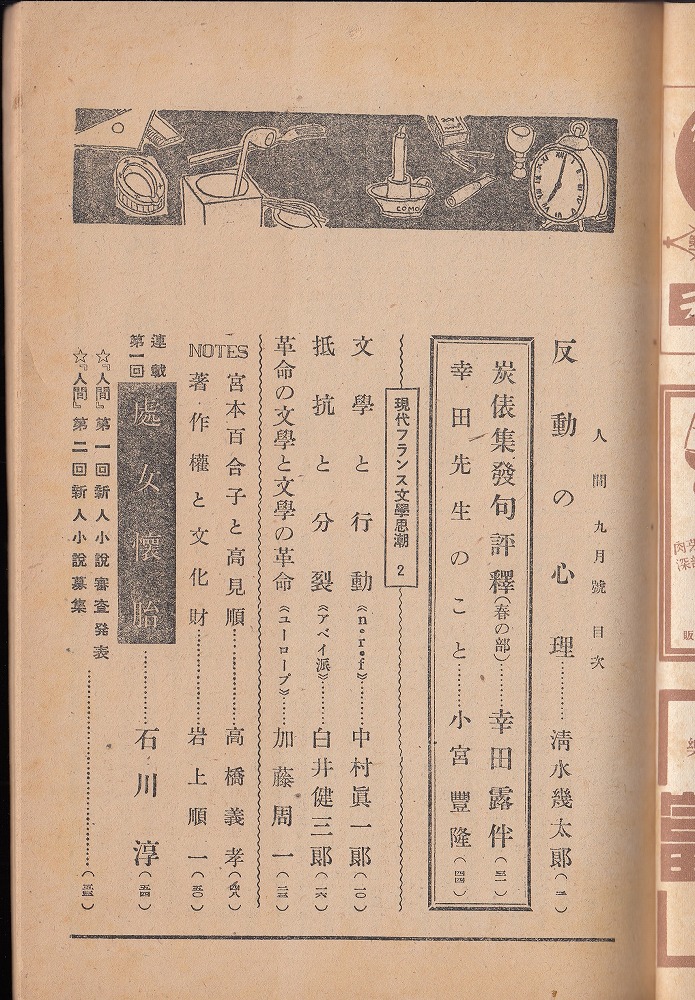 人間 九月號 目次
反動の心理…………清水幾太郎(二)
炭俵集發句評釋(春の部)………幸田露伴(三一)
幸田先生のこと………小宮豐隆(四四)
現代フランス文學思潮 2
文學と行動《n·r·f》………中村眞一郎(一〇)
抵抗と分裂《アベイ派》………白井健三郎(一六)
革命の文學と文學の革命《ユーロープ》……加藤周一(二三)
NOTES
宮本百合子と高見順………高橋義孝(四八)
著作權と文化財………岩上順一(五〇)
連載
第一回
處女懷胎………石川淳(五四)
☆『人間』第一回新人小說審査発表
☆『人間』第二回新人小說募集
………
COMO